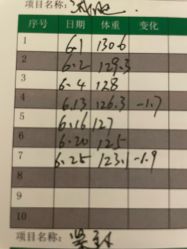 项目名称:
序号 日期 体重 变化
1 6.1 130.6
2 6.2 129.3
3 6.4 128
4 6.13 126.3 -1.7
5 6.16 127
6 6.20 125
7 6.25 123.1 -1.9
8
9
10
项目名称: